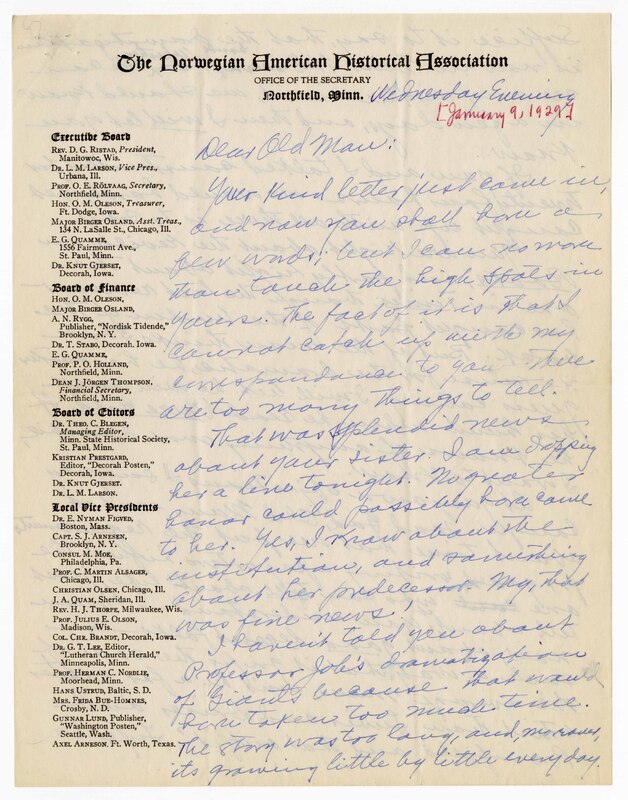 The Norwegian American Historical Association
OFFICE OF THE SECRETARY
Northfield, Minn.
Wednesday Evening
[January 9, 1929]
Executive Board
REV. D. G. RISTAD, President,
Manitowoc, Wis.
DR. L. M. LARSON, Vice Pres.,
Urbana, Ill.
PROF. O. E. RÖLVAAG, Secretary,
Northfield, Minn.
HON. O. M. OLESON, Treasurer,
Ft. Dodge, Iowa.
MAJOR BIRGER OSLAND, Asst. Treas.,
134 N. LaSalle St., Chicago, Ill.
E. G. QUAMME,
1556 Fairmount Ave.,
St. Paul, Minn.
DR. KNUT GJERSET,
Decorah, Iowa.
Board of Finance
HON. O. M. OLESON,
MAJOR BIRGER OSLAND,
A. N. RYGG,
Publisher, "Nordisk Tidende,"
Brooklyn, N. Y.
DR. T. STABO, Decorah, Iowa.
E. G. QUAMME,
PROF. P. O. HOLLAND,
Northfield, Minn.
DEAN J. JÖRGEN THOMPSON,
Financial Secretary,
Northfield, Minn.
Board of Editors
DR. THEO. C. BLEGEN,
Managing Editor,
Minn. State Historical Society,
St. Paul, Minn.
KRISTIAN PRESTGARD,
Editor, "Decorah Posten,"
Decorah, Iowa.
DR. KNUT GJERSET.
DR. L. M. LARSON.
Local Vice Presidents
DR. E. NYMAN FIGVED,
Boston, Mass.
CAPT. S. J. ARNESEN,
Brooklyn, N. Y.
CONSUL M. MOE,
Philadelphia, Pa.
PROF. C. MARTIN ALSAGER,
Chicago, Ill.
CHRISTIAN OLSEN, Chicago, Ill.
J. A. QUAM, Sheridan, Ill.
REV. H. J. THORPE, Milwaukee, Wis.
PROF. JULIUS E. OLSON,
Madison, Wis.
COL. CHR. BRANDT, Decorah, Iowa.
DR. G. T. LEE, Editor,
"Lutheran Church Herald,"
Minneapolis, Minn.
PROF. HERMAN C. NORDLIE,
Moorhead, Minn.
HANS USTRUD, Baltic, S. D.
MRS. FRIDA BUE-HOMNES,
Crosby, N. D.
GUNNAR LUND, Publisher,
"Washington Posten,"
Seattle, Wash.
AXEL ARNESON, Ft. Worth, Texas.
Dear Old Man:
Your kind letter just came in,
and now you shall have a
few words; but I can no more
than touch the high spots in
yours. The fact of it is that I
cannot catch up with my
correspondance to you. There
are too many things to tell.
That was splendid news
about your sister. I am dropping
her a line tonight. No greater
honor could possibly have come
to her. Yes, I know about the
institution, and something
about her predecessor. My, that
was fine news!
I haven't told you about
Professor Job's dramatization
of Giants because that would
have taken too much time.
The story was too long, and, moreover,
its growing little by little every day.